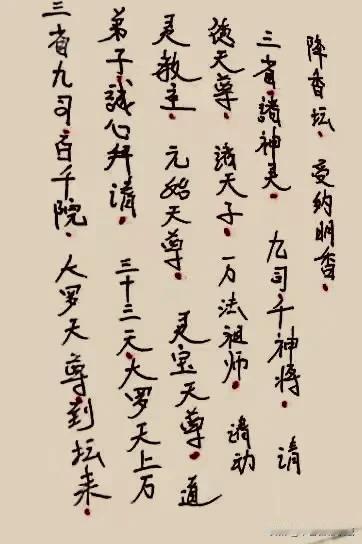 三省九司百千院。大罗天尊到坛来。
弟子誠心拜请。三十三天大罗天上万
灵教主。元始天尊。灵宝天尊。道
德天尊。諸天子。万法祖师。请动
三省諸神灵。九司千神将。请
降香坛。受约明香。